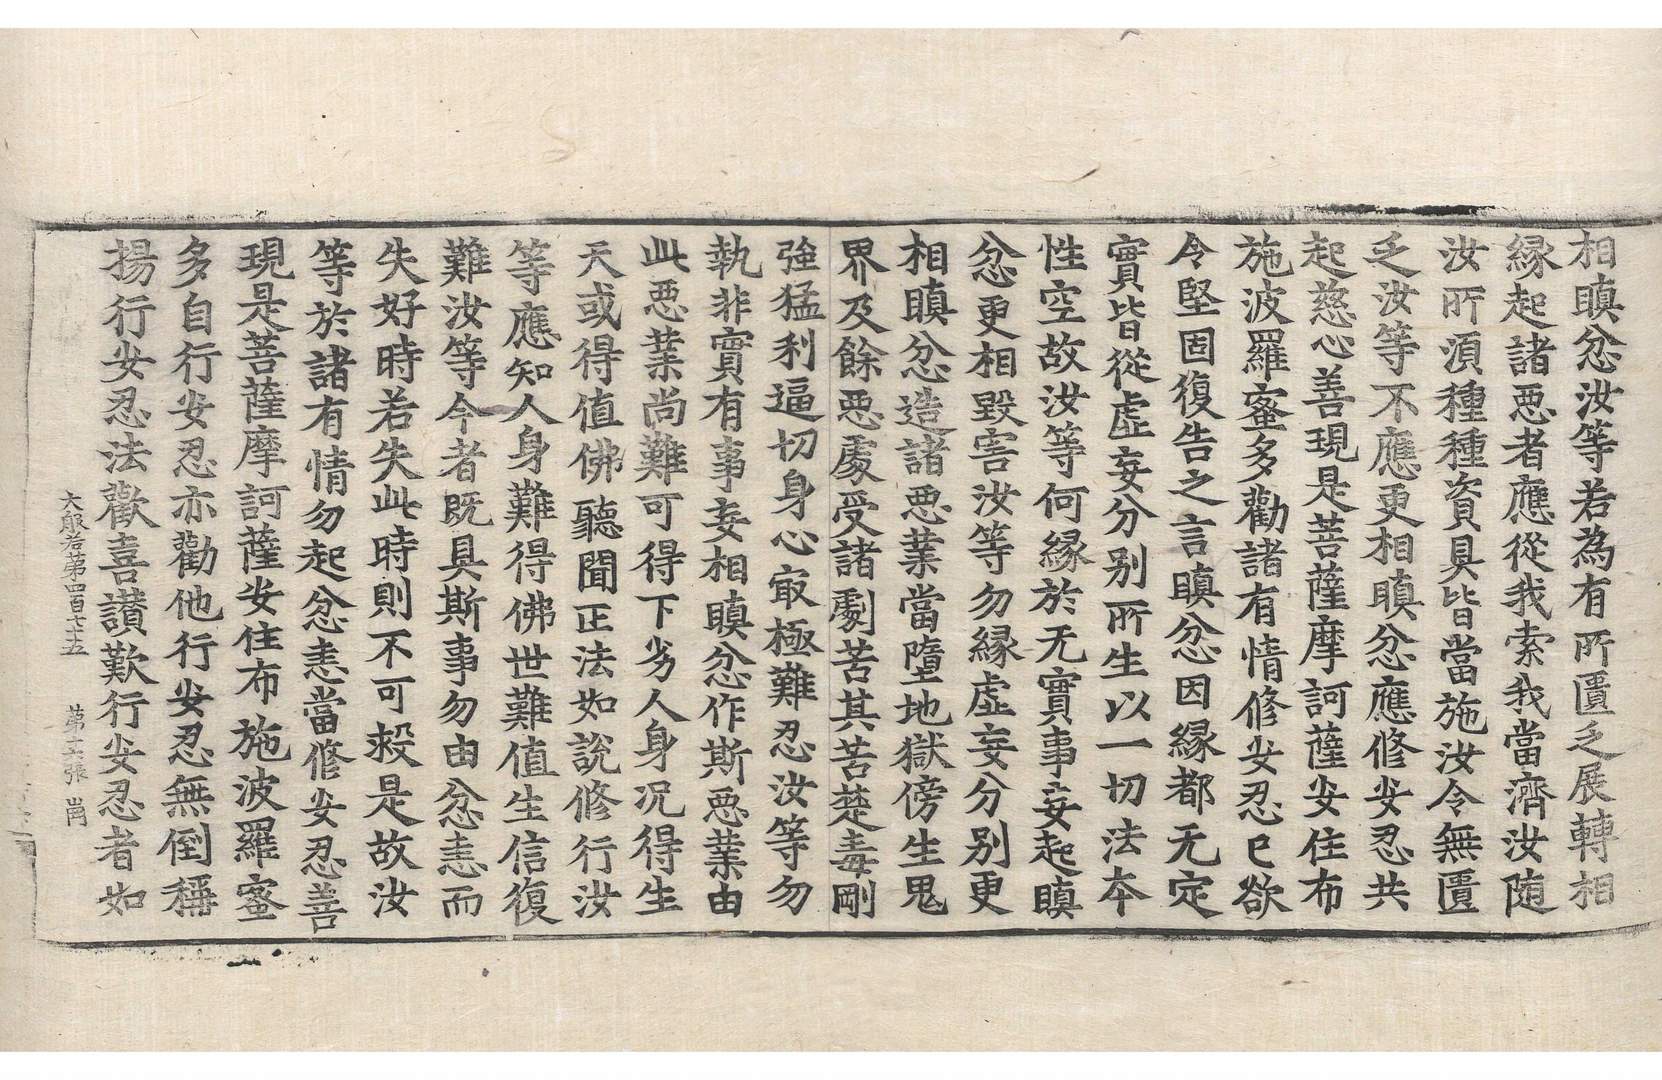 相瞋忿汝等若為有所匱乏展轉相
縁起諸惡者應從我索我當濟汝随
汝所湏種種資具皆當施汝令無匱
乏汝等不應更相瞋忿應修安忍共
起慈心善現是菩薩摩訶薩安住布
施波羅蜜多勸諸有情修安忍已欲
令堅固復告之言瞋忿因縁都无定
實皆從虛妄分別所生以一切法本
性空故汝等何縁於无實事妄起瞋
忿更相毀害汝等勿縁虛妄分別更
相瞋忿造諸惡業當墮地獄傍生鬼
界及餘惡處受諸劇苦其苦楚毒剛
強猛利逼切身心㝡極難忍汝等勿
執非實有事妄相瞋忿作斯惡業由
此惡業尚難可得下劣人身況得生
天或得值佛聽聞正法如說修行汝
等應知人身難得佛世難值生信復
難汝等今者既具斯事勿由忿恚而
失好時若失此時則不可救是故汝
等於諸有情勿起忿恚當修安忍善
現是菩薩摩訶薩安住布施波羅蜜
多自行安忍亦勸他行安忍無倒稱
揚行安忍法歡喜讃歎行安忍者如
大般若第四百七十五 第十六張 崗